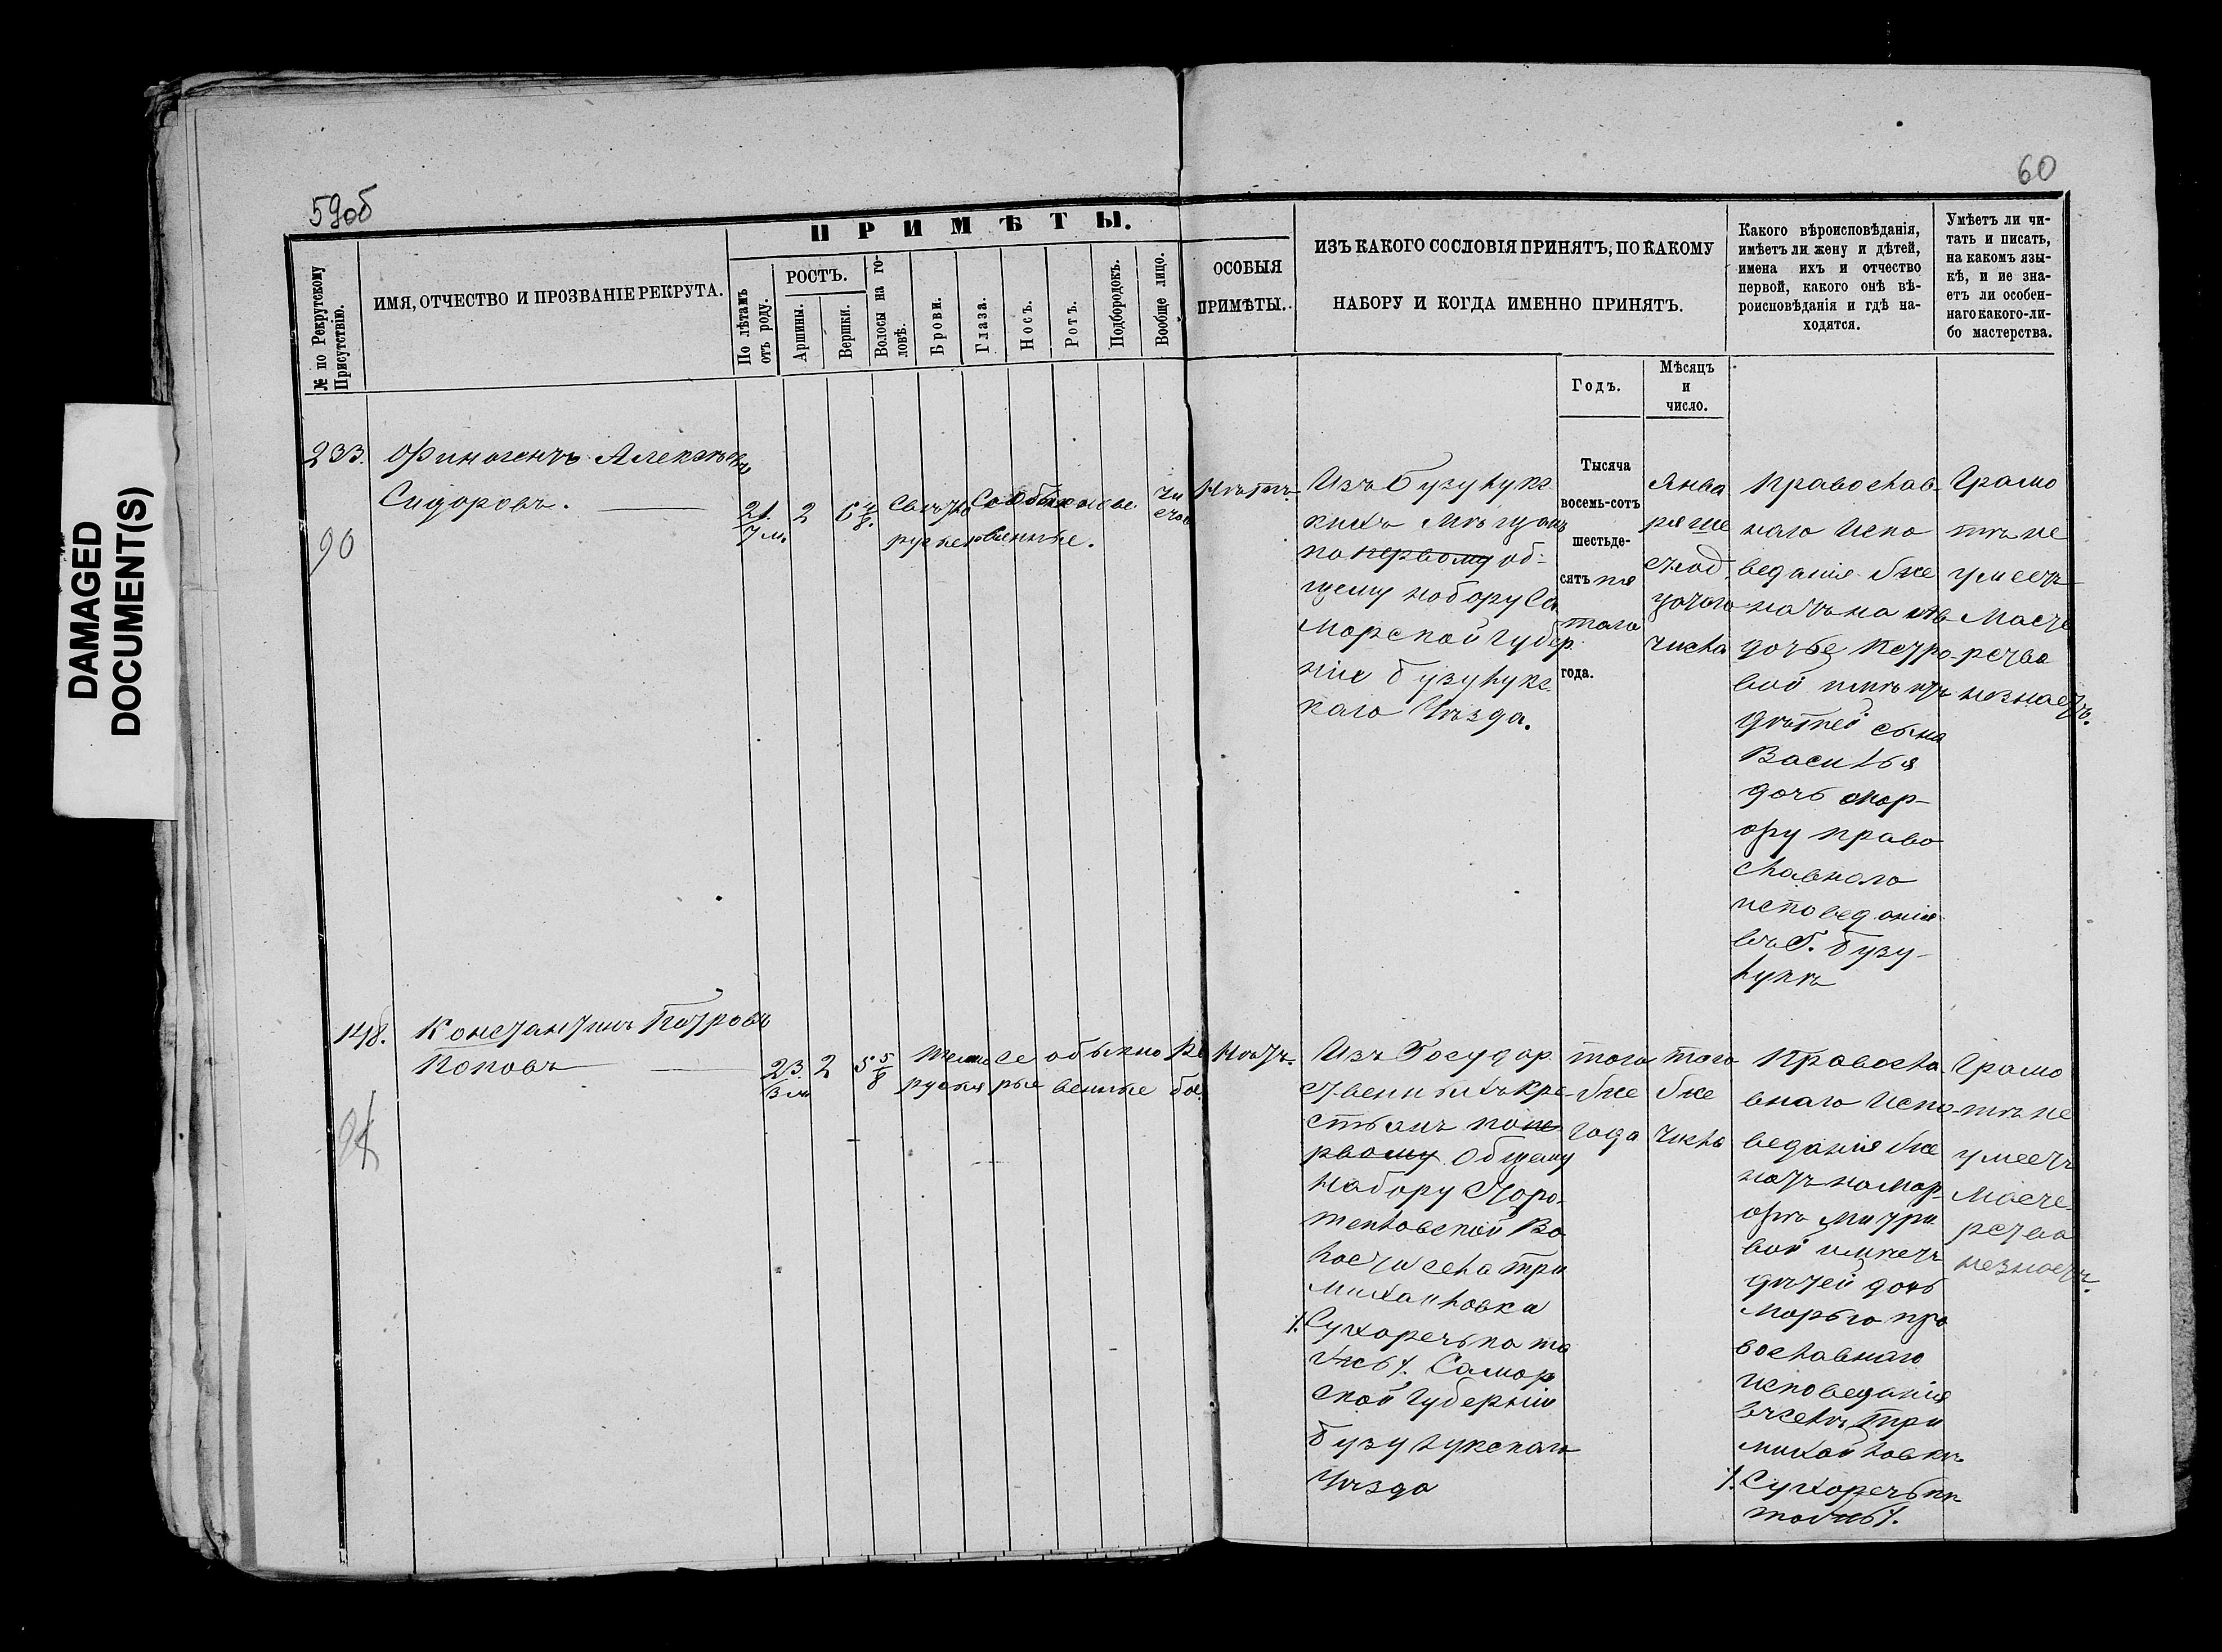 59об
60
DAMAGED
DOCUMENT(S)
ПРИМѢТЫ.
№ по Рекрутскому
Присутствію.
ИМЯ, ОТЧЕСТВО И ПРОЗВАНІЕ РЕКРУТА.
По лѣтамъ
отъ роду.
РОСТЪ.
Аршины.
Вершки.
Волосы на го-
ловѣ.
Брови.
Глаза.
Носъ.
Ротъ.
Подбородокъ.
Вообще лицо.
ОСОБЫЯ
ПРИМѢТЫ.
ИЗЪ КАКОГО СОСЛОВІЯ ПРИНЯТЪ, ПО КАКОМУ
НАБОРУ И КОГДА ИМЕННО ПРИНЯТЪ.
Годъ.
Мѣсяцъ
и
число.
Какого вѣроисповѣданія,
имѣетъ ли жену и дѣтей,
имена ихъ и отчество
первой, какого онѣ вѣ-
роисповѣданія и гдѣ на-
ходятся.
Умѣетъ ли чи-
тать и писать,
на какомъ язы-
кѣ, и не зна-
етъ ли особен-
наго какого-ли-
бо мастерства.
233.
Финогенъ Алексѣевъ
Сидоровъ.
90
21.
7 м.
2
6 4/8.
Свѣтло
русые
Обыкно
венные.
чи
стое
Нѣтъ.
Изъ бузулукс
кихъ мѣщанъ
по первому об-
щему набору Са
марской губер
ніи бузулукс
каго Уѣзда.
Тысяча
восемь-сотъ
шестьде-
сятъ пя
таго
года.
Янва
ря ше
стнад
цатаго
числа
Православ-
наго испо
веданія же
натъ на
дотье Петро-
вой имѣетъ
дѣтей сына
Василья
дочь Мар-
фу право
славнаго
исповеданія
въ Г. бузу-
лукѣ
Грамо
тѣ не
умеетъ
Масте
рства
незнаетъ.
148.
Константинъ Петровъ
Поповъ
23.
3 м
2
5 5/8
темно
русыя
се
рые
обыкно
венные
ря
бое
Нѣтъ.
Изъ Государ
ственныхъ кре-
стьянъ по пе
рвому Общему
набору
Во
лости села Три
михайловка
⁒ Сухоречька то
жъ ⁒ Самар
ской Губерніи
бузулукскаго
Уѣзда
того
же
года
того
же
числа
Правосла-
внаго испо-
веданія же
натъ на Мар-
фѣ Митри
вой имѣетъ
дѣтей дочь
Марью пра
вославнаго
исповеданія
въ селѣ Три
михайловкѣ
⁒ Сухоречькѣ
тожъ ⁒
Грамо
тѣ не
умеетъ
Масте-
рства
незнаетъ.